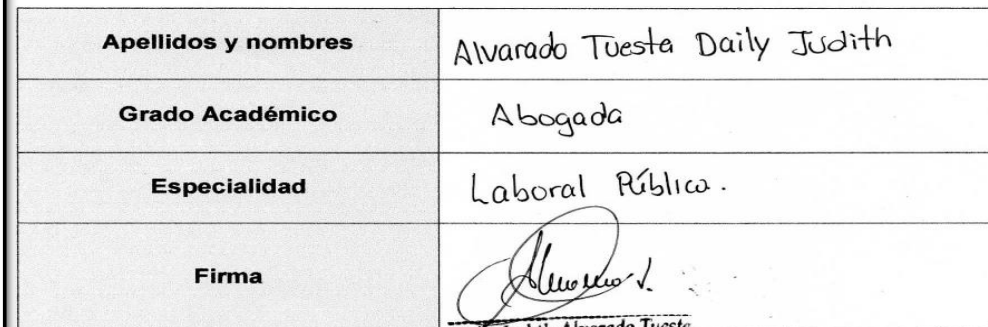 Apellidos y nombres Alvarado Tuesta Daily Judith
Grado Académico Abogada
Especialidad Laboral Público.
Firma
Alvarado Tuesta